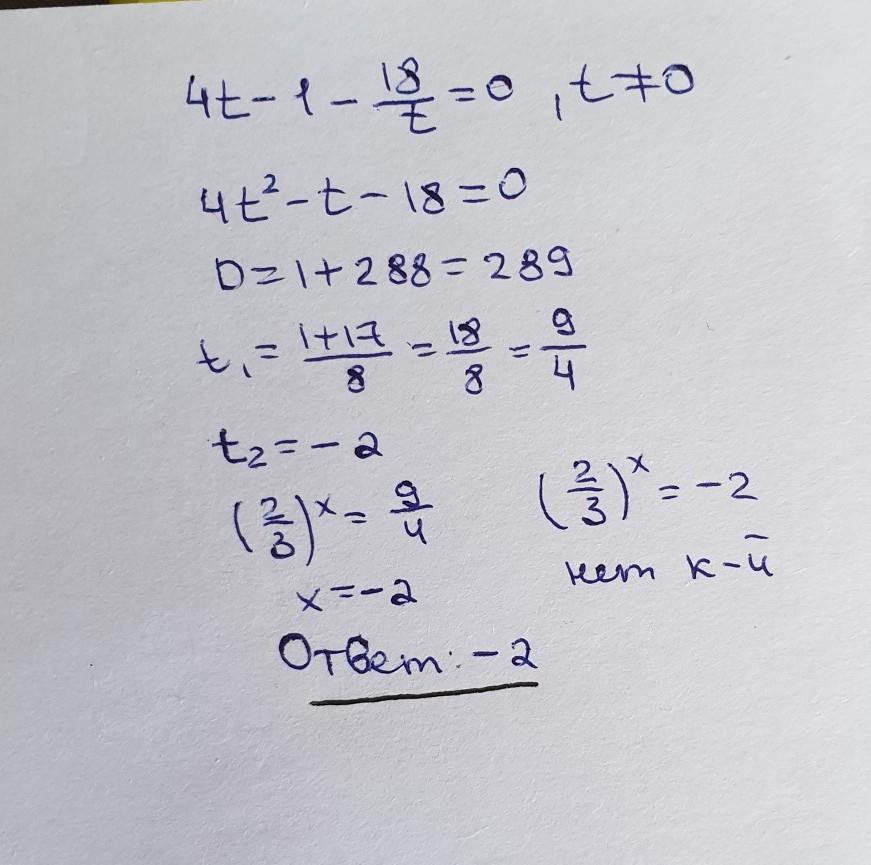 4t - 1 - 18/t = 0 , t ≠ 0
4t² - t - 18 = 0
D = 1 + 288 = 289
t₁ = (1+17)/8 = 18/8 = 9/4
t₂ = -2
(2/3)ˣ = 9/4
(2/3)ˣ = -2
x = -2
нет к-й
Ответ: -2